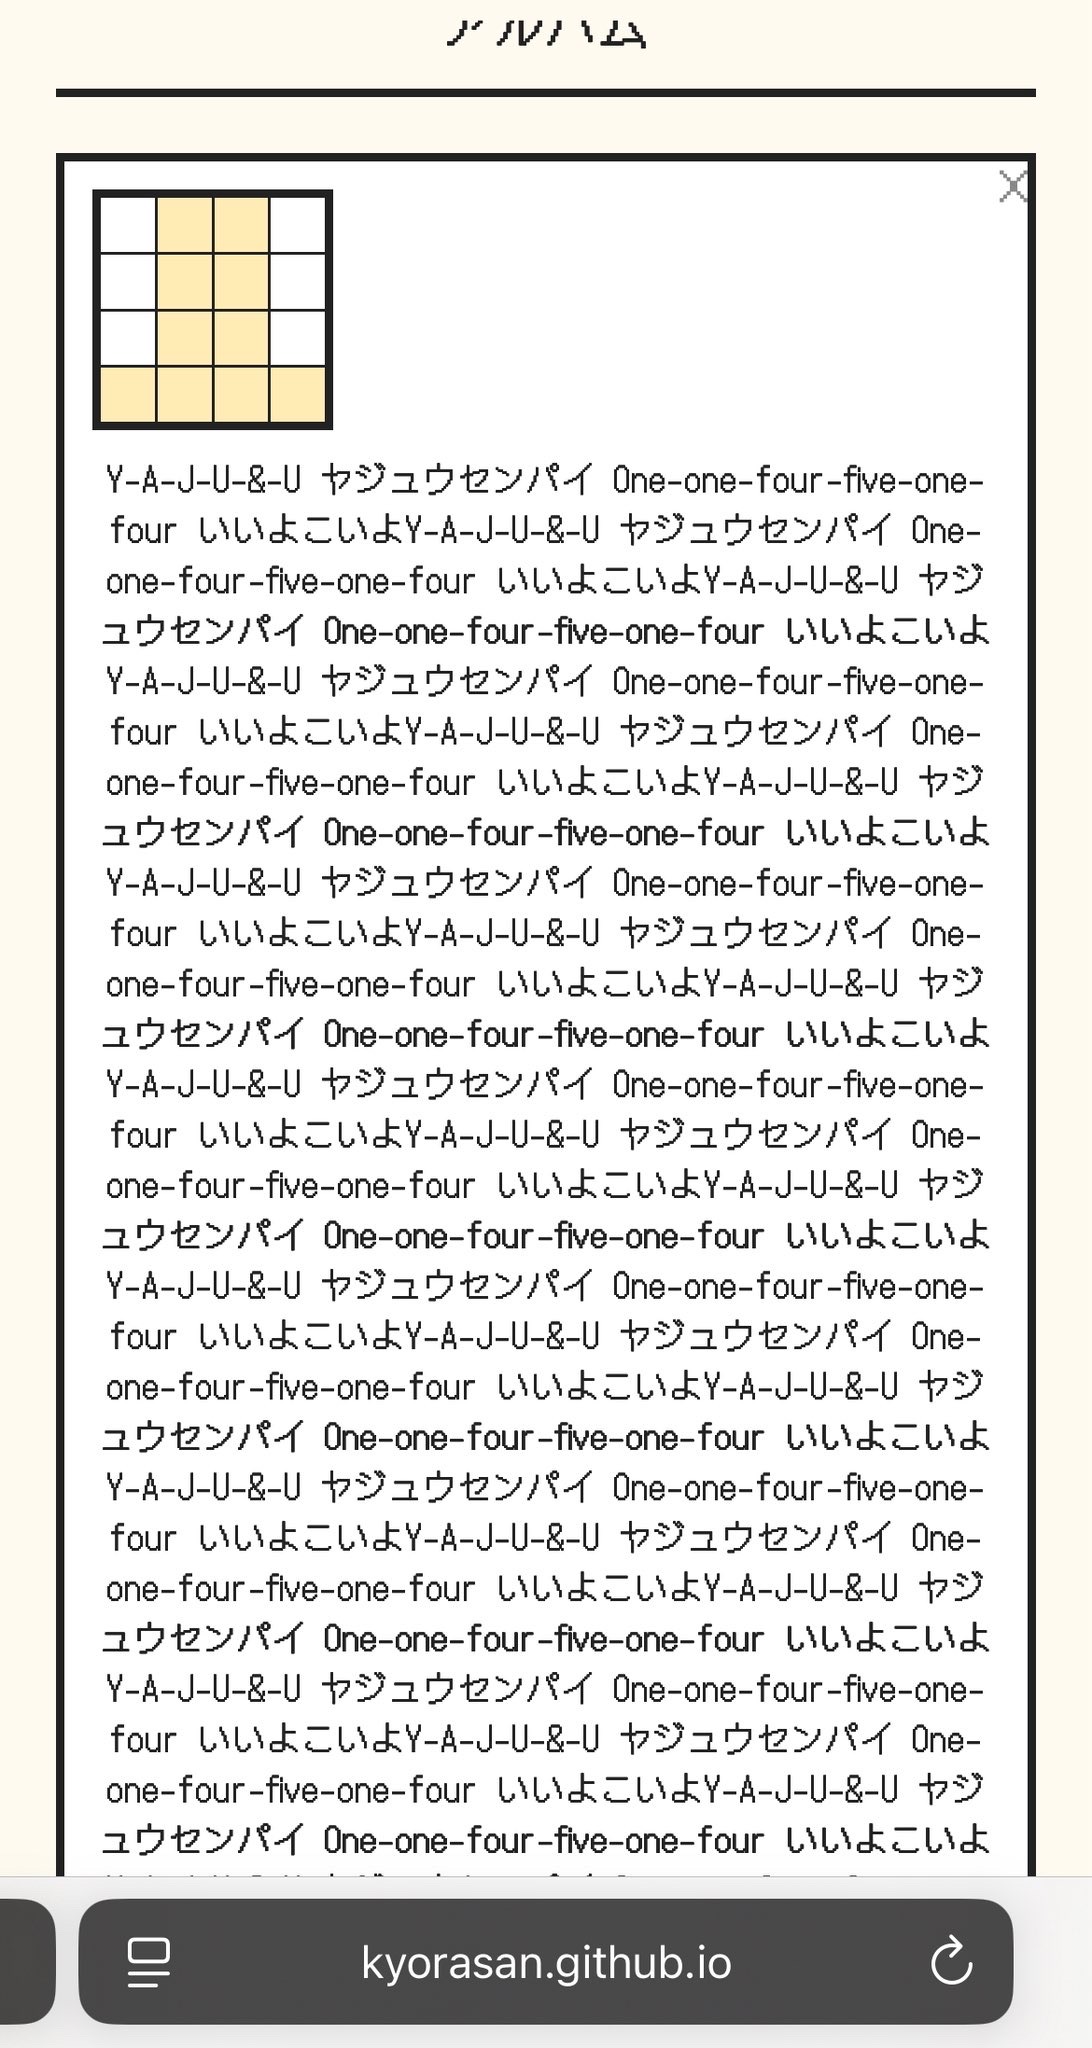 アルバム
Y-A-J-U-&-U ヤジュウセンパイ One-one-four-five-one-
four いいよこいよY-A-J-U-&-U ヤジュウセンパイ One-
one-four-five-one-four いいよこいよY-A-J-U-&-U ヤジ
ュウセンパイ One-one-four-five-one-four いいよこいよ
Y-A-J-U-&-U ヤジュウセンパイ One-one-four-five-one-
four いいよこいよY-A-J-U-&-U ヤジュウセンパイ One-
one-four-five-one-four いいよこいよY-A-J-U-&-U ヤジ
ュウセンパイ One-one-four-five-one-four いいよこいよ
Y-A-J-U-&-U ヤジュウセンパイ One-one-four-five-one-
four いいよこいよY-A-J-U-&-U ヤジュウセンパイ One-
one-four-five-one-four いいよこいよY-A-J-U-&-U ヤジ
ュウセンパイ One-one-four-five-one-four いいよこいよ
Y-A-J-U-&-U ヤジュウセンパイ One-one-four-five-one-
four いいよこいよY-A-J-U-&-U ヤジュウセンパイ One-
one-four-five-one-four いいよこいよY-A-J-U-&-U ヤジ
ュウセンパイ One-one-four-five-one-four いいよこいよ
Y-A-J-U-&-U ヤジュウセンパイ One-one-four-five-one-
four いいよこいよY-A-J-U-&-U ヤジュウセンパイ One-
one-four-five-one-four いいよこいよY-A-J-U-&-U ヤジ
ュウセンパイ One-one-four-five-one-four いいよこいよ
Y-A-J-U-&-U ヤジュウセンパイ One-one-four-five-one-
four いいよこいよY-A-J-U-&-U ヤジュウセンパイ One-
one-four-five-one-four いいよこいよY-A-J-U-&-U ヤジ
ュウセンパイ One-one-four-five-one-four いいよこいよ
Y-A-J-U-&-U ヤジュウセンパイ One-one-four-five-one-
four いいよこいよY-A-J-U-&-U ヤジュウセンパイ One-
one-four-five-one-four いいよこいよY-A-J-U-&-U ヤジ
ュウセンパイ One-one-four-five-one-four いいよこいよ
kyorasan.github.io